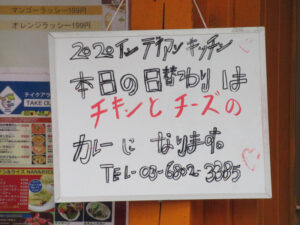 マンゴーラッシー199円
オレンジラッシー199円
2020インディアンキッチン
本日の日替わりは
チキンとチーズの
カレーになります。
TEL-03-6802-3385
テイクアウ
TAKE OU